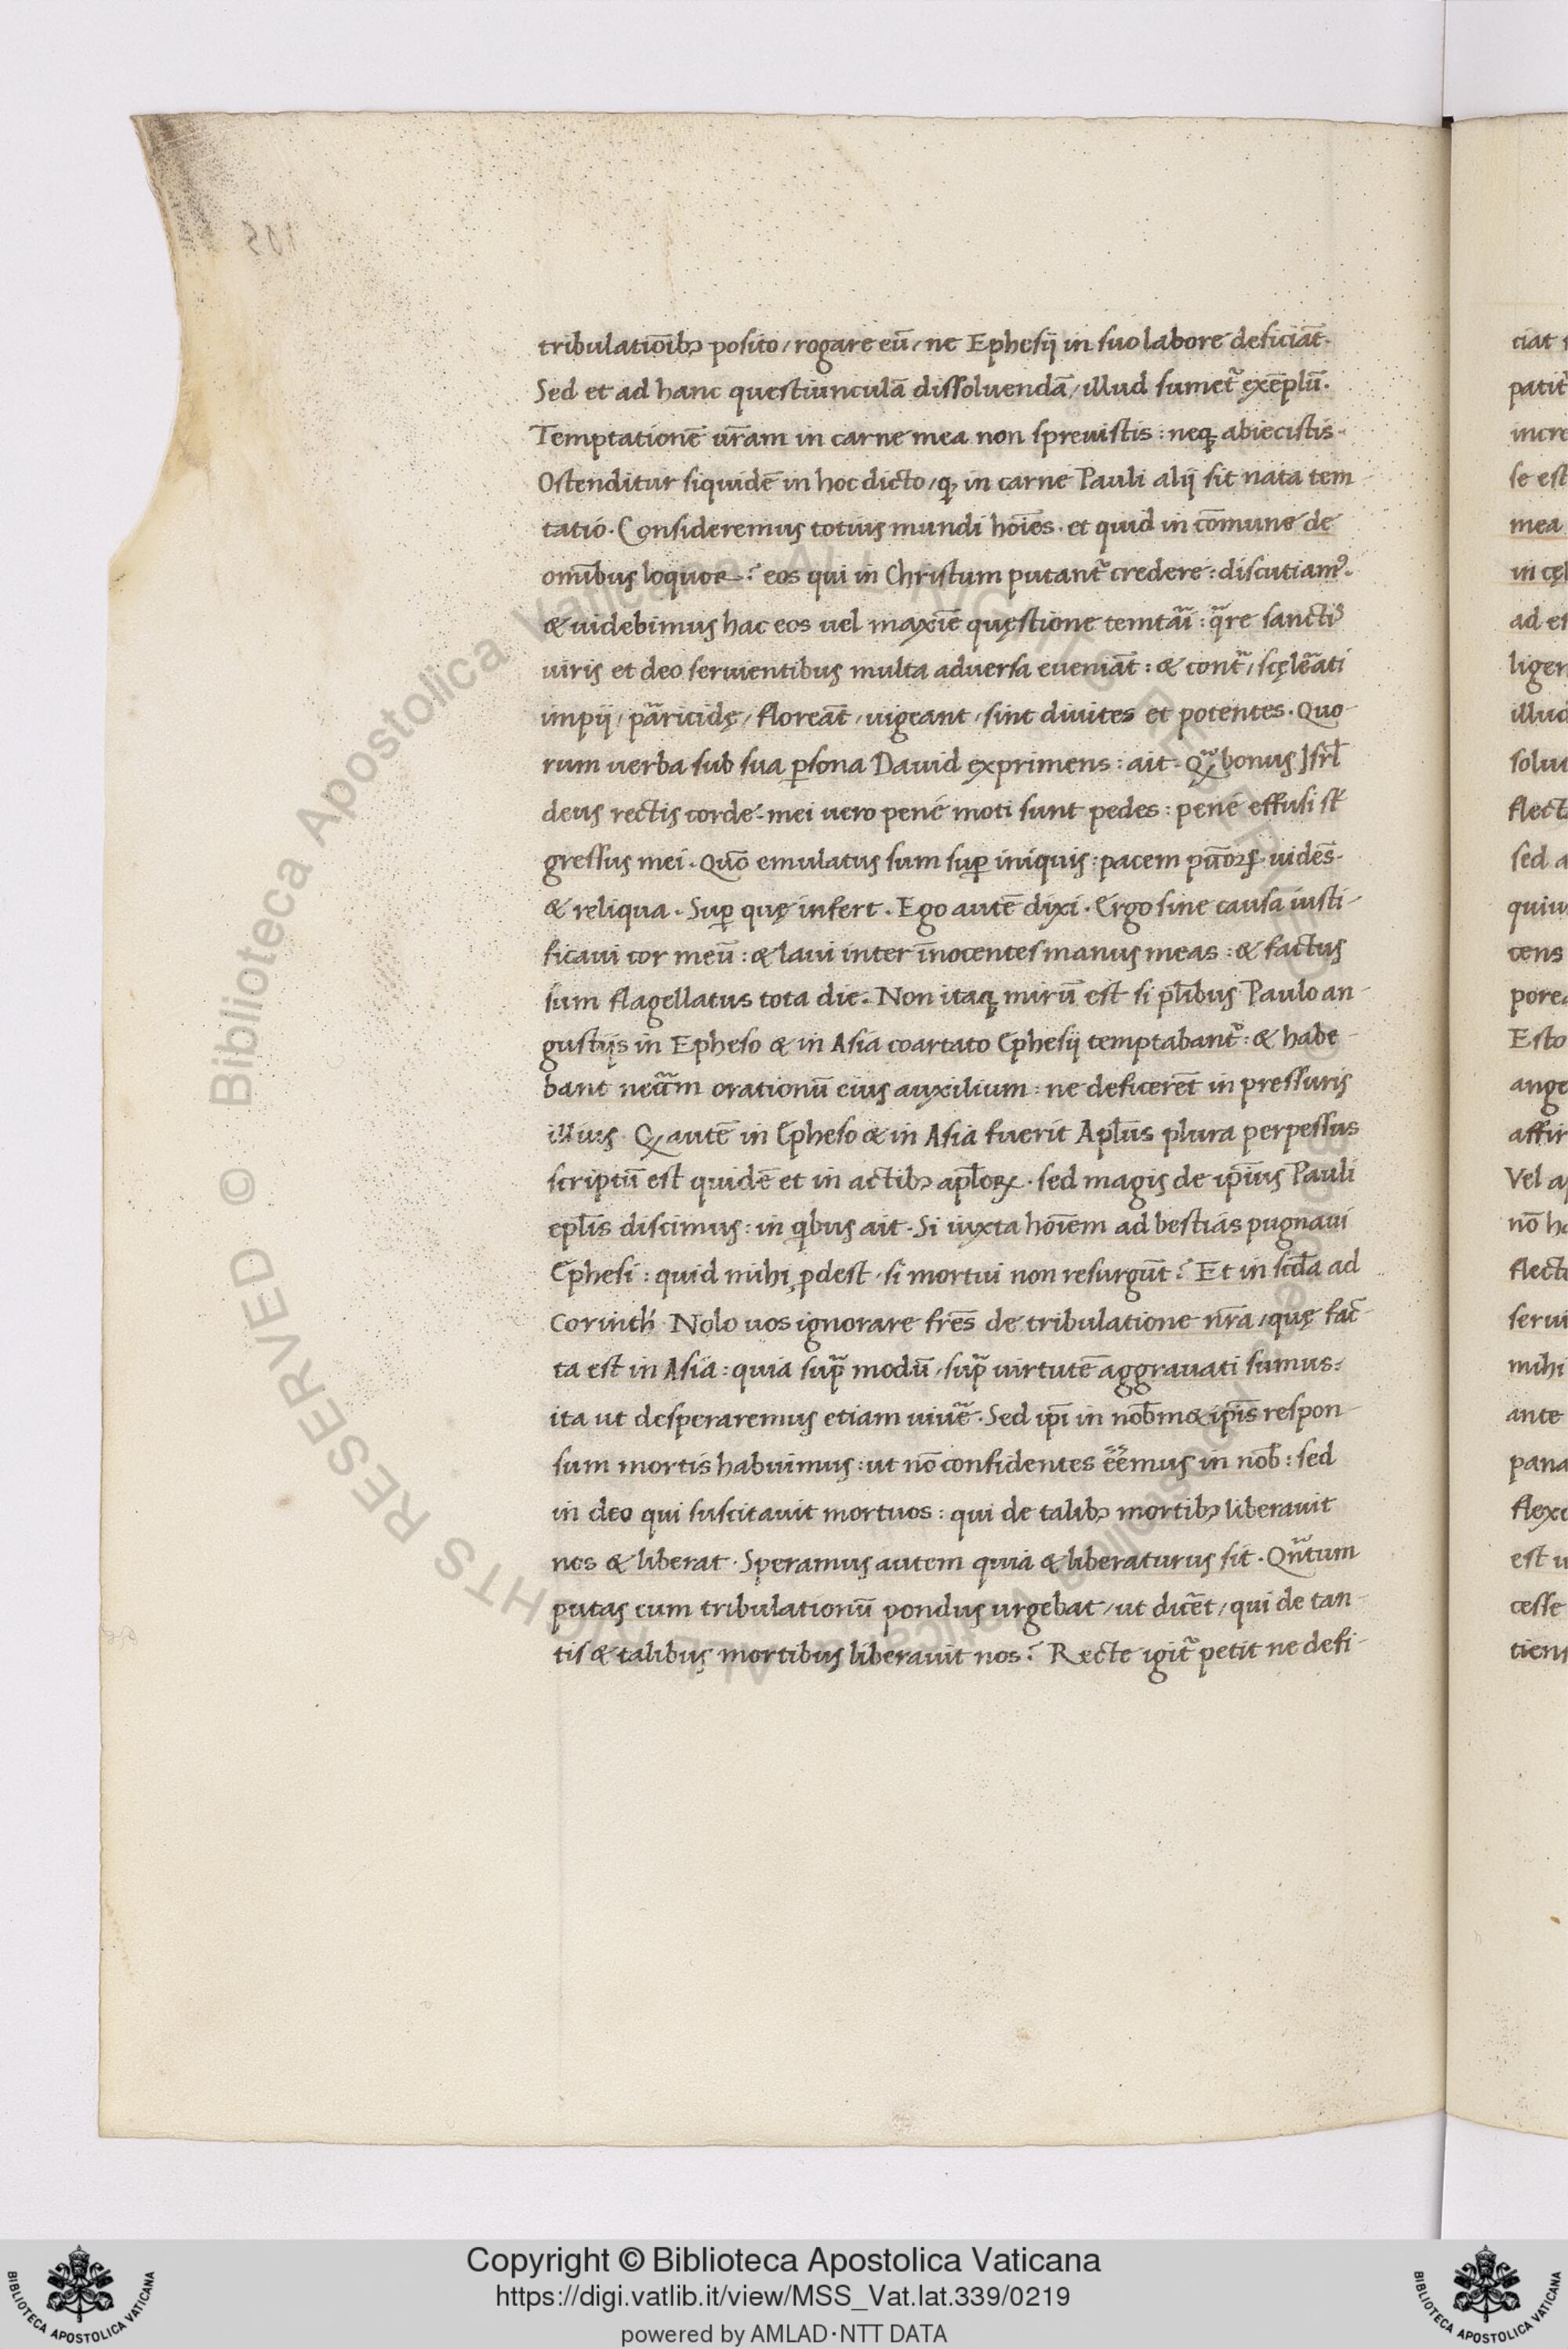 tribulatiōibꝫ posito / rogare eū / ne Ephesij in suo labore deficiāt.
Sed et ad hanc questiunculā dissoluendā / illud sumet᷑ exēplū.
Temptationē ur̄am in carne mea non spreuistis : neqꝫ abiecistis.
Ostenditur siquidē in hoc dicto / qꝫ in carne Pauli alij sit nata tem
tatio. Consideremus totius mundi hoīes. et quid in cōmune de
omībus loquor? eos qui in Christum putant᷑ credere : discutiamꝰ.
& uidebimus hac eos uel maxīe quęstione temtaᷓi : qᷓre sanctis
uiris et deo seruientibus multa aduersa eueniāt : & contᷓ / scęleᷓati
impij / paᷓricidę / floreāt / uigeant / sint diuites et potentes. Quo-
rum uerba sub sua ꝑsona Dauid exprimens : ait. Qᷓꝫ bonus Isrl̄
deus rectis corde. mei uero pene moti sunt pedes : pene effusi st̄
gressus mei. Quō emulatus sum suꝑ iniquis : pacem pēcōꝝ uidēs.
& reliqua. Suꝑ quę infert. Ego autē dixi. Ergo sine causa iusti-
ficaui cor meū : & laui inter īnocentes manus meas : & factus
sum flagellatus tota die. Non itaqꝫ mirū est si pl̄ibus Paulo an-
gustijs in Epheso & in Asia coartato Ephesij temptabant᷑ : & habe-
bant necᷓm orationū eius auxilium : ne deficerēt in pressuris
illius. Qꝫ autē in Epheso & in Asia fuerit Apl̄us plura perpessus
scriptū est quidē et in actibꝫ apl̄oꝝ. sed magis de ip̄ius Pauli
epl̄is discimus : in qͥbus ait. Si iuxta hoīem ad bestias pugnaui
Ephesi : quid mihi ꝓdest / si mortui non resurgūt? Et in scd̄a ad
Corinth̄. Nolo uos ignorare fr̄es de tribulatione nr̄a / quę fac-
ta est in Asia : quia supᷓ modū / supᷓ uirtutē aggrauati sumus :
ita ut desperaremus etiam uiuẽ. Sed ip̄i in nob̄m& ip̄is respon-
sum mortis habuimus : ut nō confidentes eẽmus in nob̄ : sed
in deo qui suscitauit mortuos : qui de talibꝫ mortibꝫ liberauit
nos & liberat. Speramus autem quia & liberaturus sit. Qᷓntum
putas eum tribulationū pondus urgebat / ut dic̄et / qui de tan-
tis & talibus mortibus liberauit nos? Recte igit᷑ petit ne defi-
ciat
patit᷑
incre
se est
mea
in cęl
ad ef
liger
illud
solu
flect
sed a
quiu
cens
pore
Esto
ange
affir
Vel a
nō h
flect
serui
mihi
ante
pana
flex
est u
cesse
tiens
© Biblioteca Apostolica Vaticana ALL RIGHTS RESERVED
Copyright © Biblioteca Apostolica Vaticana
https://digi.vatlib.it/view/MSS_Vat.lat.339/0219
powered by AMLAD·NTT DATA
BIBLIOTECA APOSTOLICA VATICANA
BIBLIOTECA APOSTOLICA VATICANA